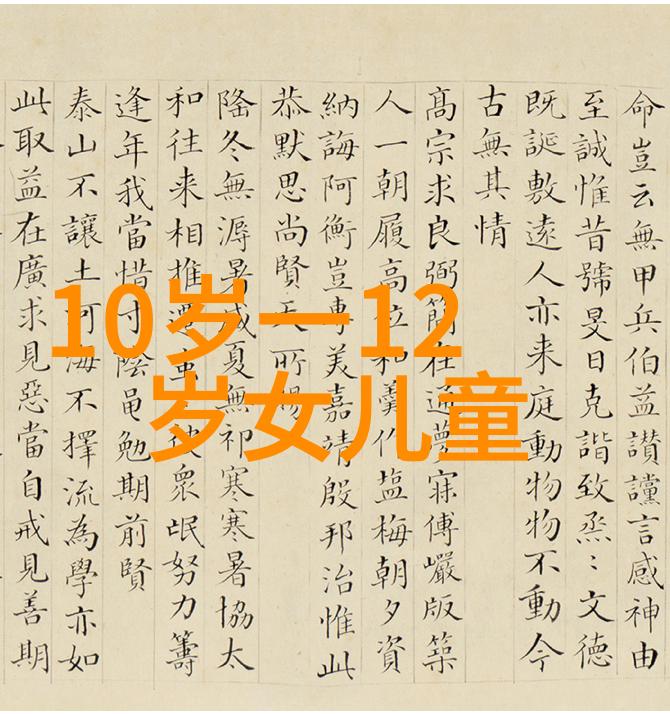 10岁一12
岁女儿童
命豈云無甲兵伯益讚讜言感神由
至誠惟昔號旻日克諧致烝〻文德
既誕敷遠人亦来庭動物物不動今
古無其情
高宗求良弼簡在通夢寐傅巖版築
人一朝履高位和羹作塩梅朝夕資
納誨阿衡豈專美嘉靖殷邦治惟此
恭默思尚賢天所
隆冬無溽暑盛夏無祁寒寒暑協太
和往来相推衆氓努力籌
逢年我當惜寸陰黽勉期前賢
泰山不讓土河海不擇流為學亦如
此取益在廣求見惡當自戒見善期